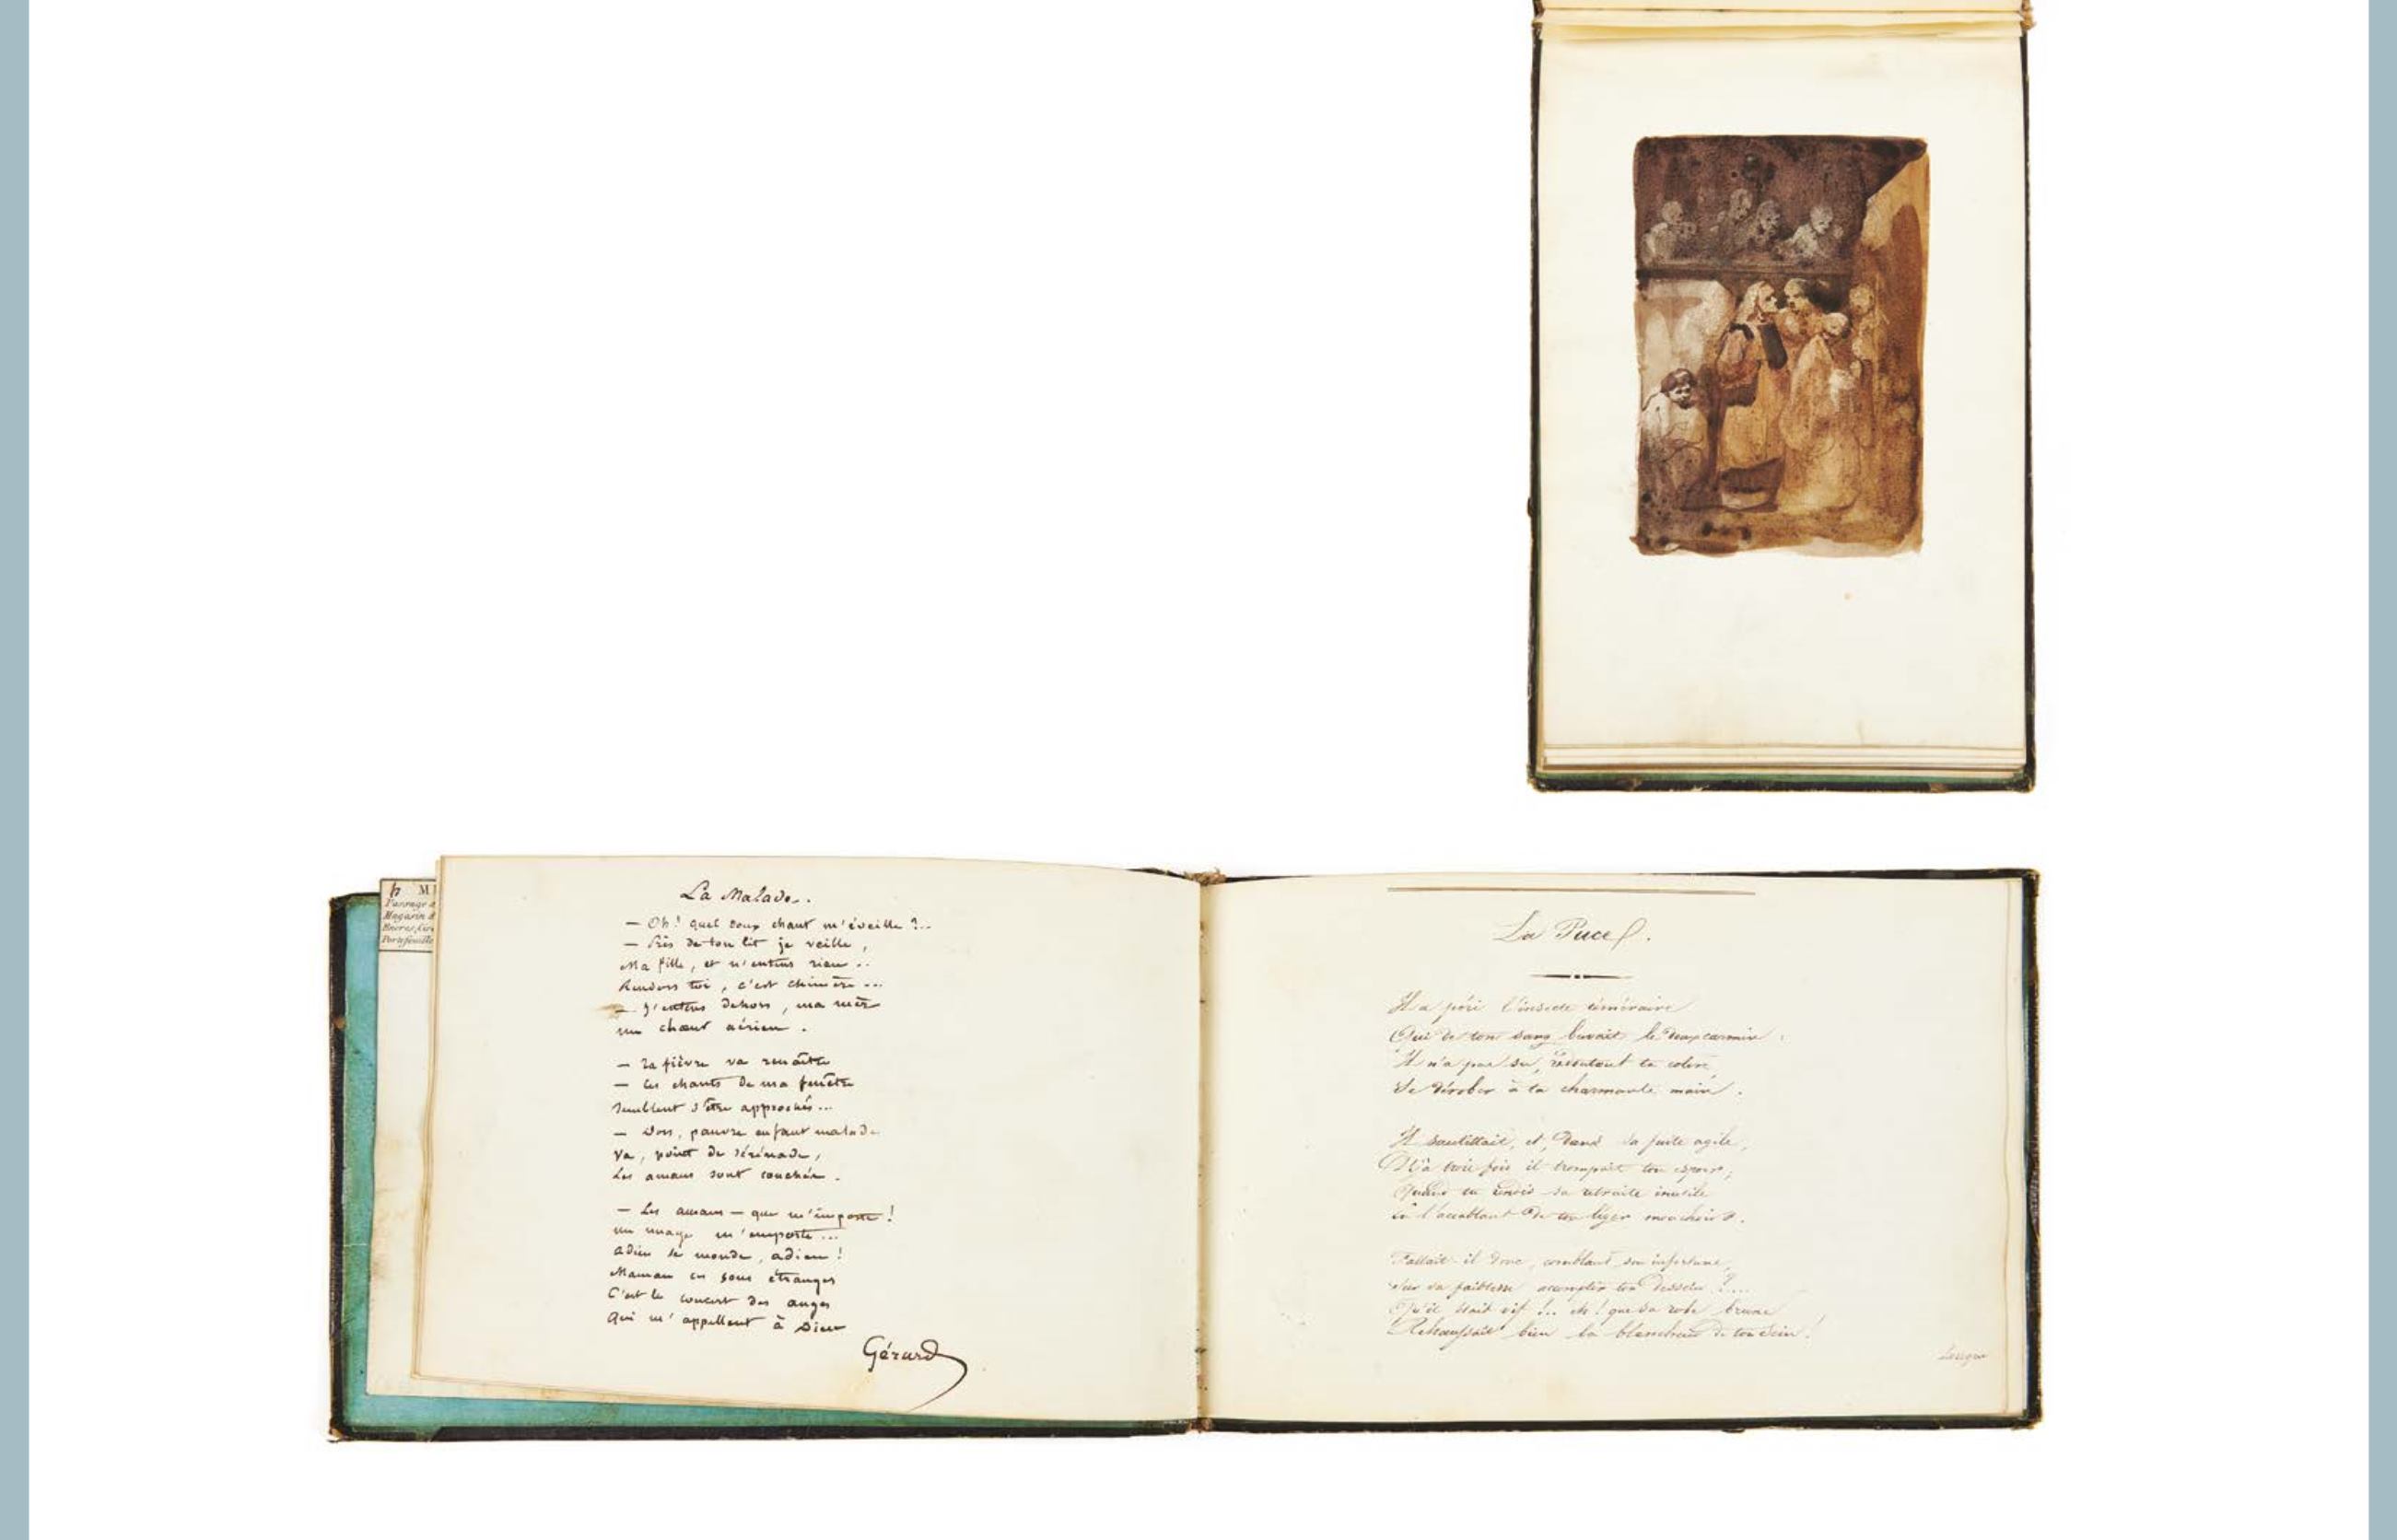 h M
Passage d
Magasin d
Encres, Cir
Portefeuille
La Malade.
— Oh! quel doux chant m'éveille ?..
— Près de ton lit je veille,
Ma fille, et n'entens rien..
Rendors toi, c'est chimère...
— J'entens dehors, ma mère
un chœur aérien.
— Ta fièvre va renaître
— Ces chants de ma fenêtre
Semblent s'être approchés...
— Dors, pauvre enfant malade
Va, point de sérénade,
Les amans sont couchés.
— Les amans — que m'importe!
un nuage m'emporte...
adieu le monde, adieu!
Maman ces sons étranges
C'est le concert des anges
Qui m'appellent à Dieu
Gérard
La Puce.
Il a péri l'insecte téméraire
Qui de ton sang buvait le doux carmin:
Il n'a pas su, redoutant ta colère
Se dérober à ta charmante main.
Il sautillait, et, dans sa fuite agile,
Déjà trois fois il trompait ton espoir;
Quand tu rendis sa retraite inutile
En l'accablant de ton léger mouchoir.
Fallait-il donc, comblant son infortune,
Sur sa faiblesse accomplir ton dessein ?...
Qu'il était vif !.. oh! que sa robe brune
Rehaussait bien la blancheur de ton sein!